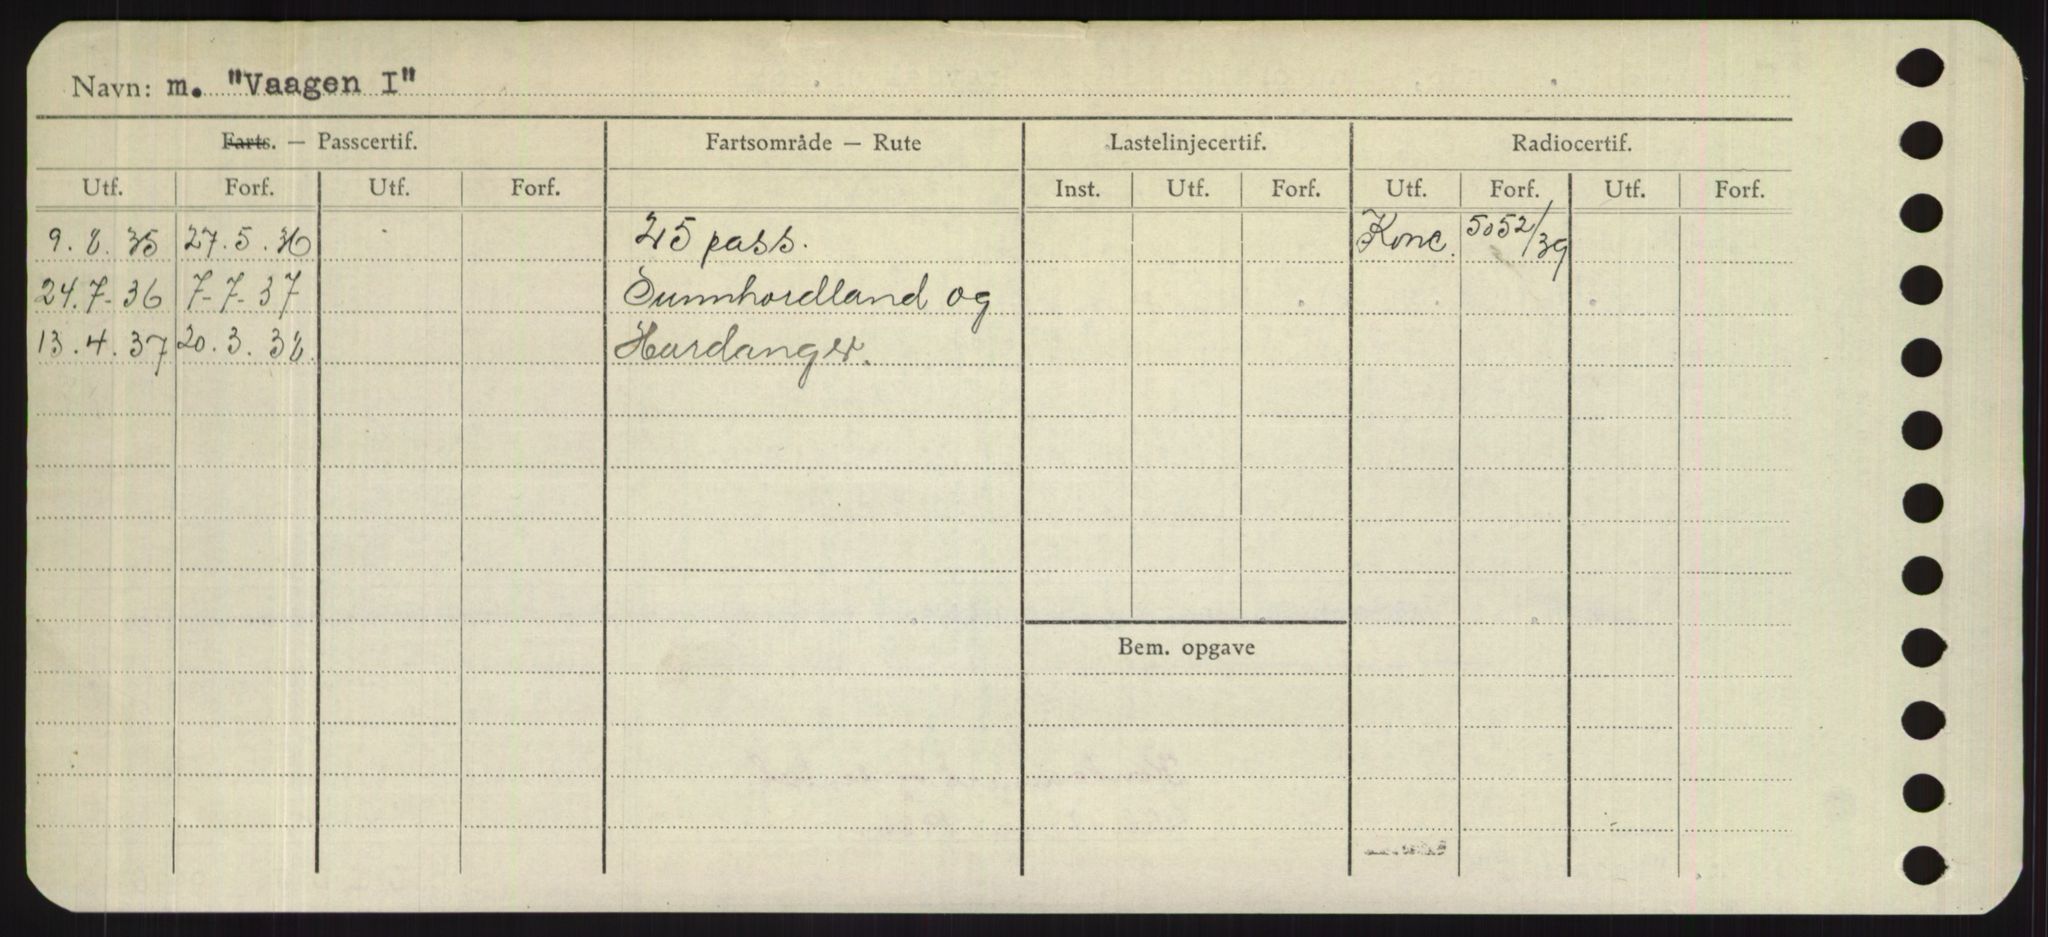 Navn: m. "Vaagen I"
Farts. — Passcertif. Fartsområde — Rute Lastelinjecertif. Radiocertif.
Utf. Forf. Utf. Forf. Inst. Utf. Forf. Utf. Forf. Utf. Forf.
9. 8. 35 27. 5. 36 45 pass. Konc. 5052/39
24. 7- 36 7-7- 37 Sunnhordland og
13. 4. 37 20. 3. 38. Hardanger.
Bem. opgave